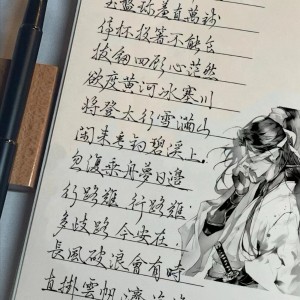 玉盤珍羞直萬錢
停杯投箸不能食
拔劍四顧心茫然
欲度黃河冰塞川
將登太行雪滿山
閒來垂釣碧溪上
忽復乘舟夢日邊
行路難 行路難
多歧路 今安在
長風破浪會有時
直掛雲帆濟滄海